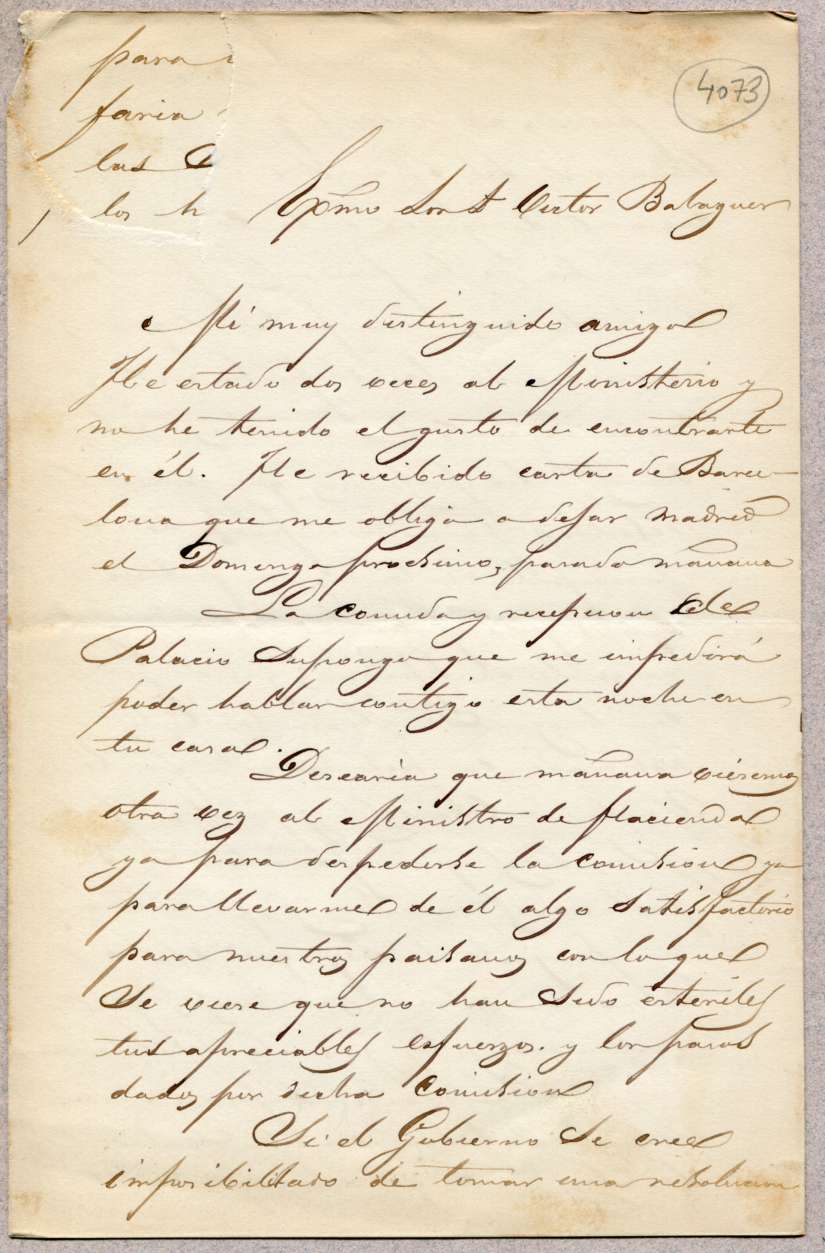 4073
para
faria
las
los h
Exmo Sor D Victor Balaguer
Mi muy distinguido amigo
He estado dos veces al Ministerio y
no he tenido el gusto de encontrarte
en él. He recibido carta de Barce-
lona que me obliga a dejar Madrid
el Domingo procsimo, pasado mañana
La comida y recepcion de
Palacio supongo que me impedirá
poder hablar contigo esta noche en
tu casa.
Desearia que mañana viésemos
otra vez al Ministro de Hacienda
ya para despedirse la comision ya
para llevarme de él algo satisfactorio
para nuestros paisanos con lo que
se viese que no han sido esteriles
tus apreciables esfuerzos. y los pasos
dados por dicha comision
Si el Gobierno se cree
imposibilitado de tomar una resolucion